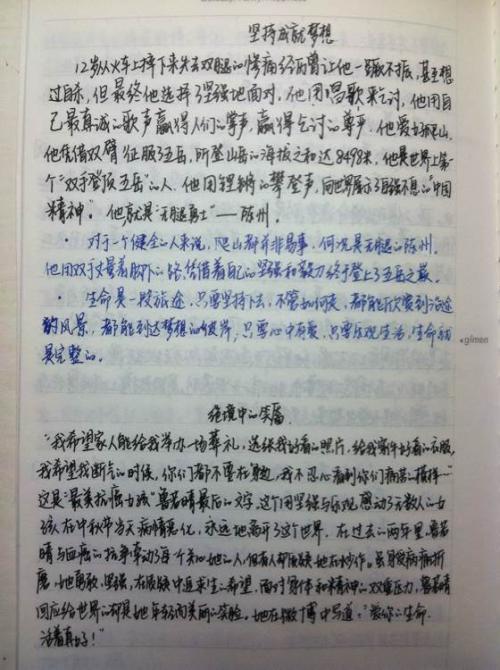 坚持成就梦想
12岁从火车上摔下来失去双腿的惨痛经历曾让他一蹶不振,甚至想
过自杀,但最终他选择了坚强地面对。他用唱歌来乞讨,他用自
己最真诚的歌声赢得人们的掌声,赢得乞讨的尊严。他爱好爬山,
他凭借双臂征服五岳,所登山岳的海拔之和达8498米,他是世界上第一
个"双手登顶五岳"的人。他用铿锵的攀登声,向世界展示了自强不息的"中国
精神"。他就是"无腿勇士"——陈州。
· 对于一个健全的人来说,爬山都并非易事,何况是无腿的陈州。
他用双手丈量着脚下的路,凭借着自己的坚强和毅力终于登上了五岳之巅。
· 生命是一段旅途,只要坚持下去,不管如何走,都能欣赏到沿途
的风景,都能到达梦想的彼岸;只要心中有爱,只要乐观生活,生命就
是完整的。
gimen
绝境中的笑靥
"我希望家人能给我举办一场葬礼,选张我好看的照片,给我穿件好看的衣服,
我希望我断气的时候,你们都不要在身边,我不忍心看到你们痛苦的模样…"
这是"最美抗癌女孩"鲁若晴最后的文字,这个用坚强与乐观感动了无数人的女
孩在中秋节当天病情恶化,永远地离开了这个世界。在过去的两年里,鲁若
晴与白血病的抗争牵动了每个关心她的人,但有人却质疑她在炒作。虽身受病痛折
磨,她勇敢、坚强,在质疑中追求生的希望,面对身体和精神的双重压力,鲁若晴
回应给世界的都是她年轻而美丽的笑脸。她在微博中写道:"爱你的生命,
活着真好!"